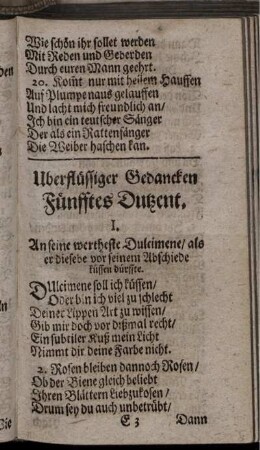 Wie schön ihr sollet werden
Mit Reden und Geberden
Durch euren Mann geehrt.
20. Kom̃t nur mit hellem Hauffen
Auf Plumpe naus gelauffen
Und lacht mich freundlich an/
Ich bin ein teutscher Sänger
Der als ein Rattenfänger
Die Weiber haschen kan.
Uberflüssiger Gedancken
Fünfftes Dutzent.
I.
An seine wertheste Dulcimene/ als
er diesebe vor seinem Abschiede
küssen dürffte.
DUlcimene soll ich küssen/
Oder bin ich viel zu schlecht
Deiner Lippen Art zu wissen/
Gib mir doch vor dißmal recht/
Ein subtiler Kuß mein Licht
Nimmt dir deine Farbe nicht.
2. Rosen bleiben dannoch Rosen/
Ob der Biene gleich beliebt
Ihren Blättern Liebzukosen/
Drum sey du auch unbetrübt/
E 3 Dann